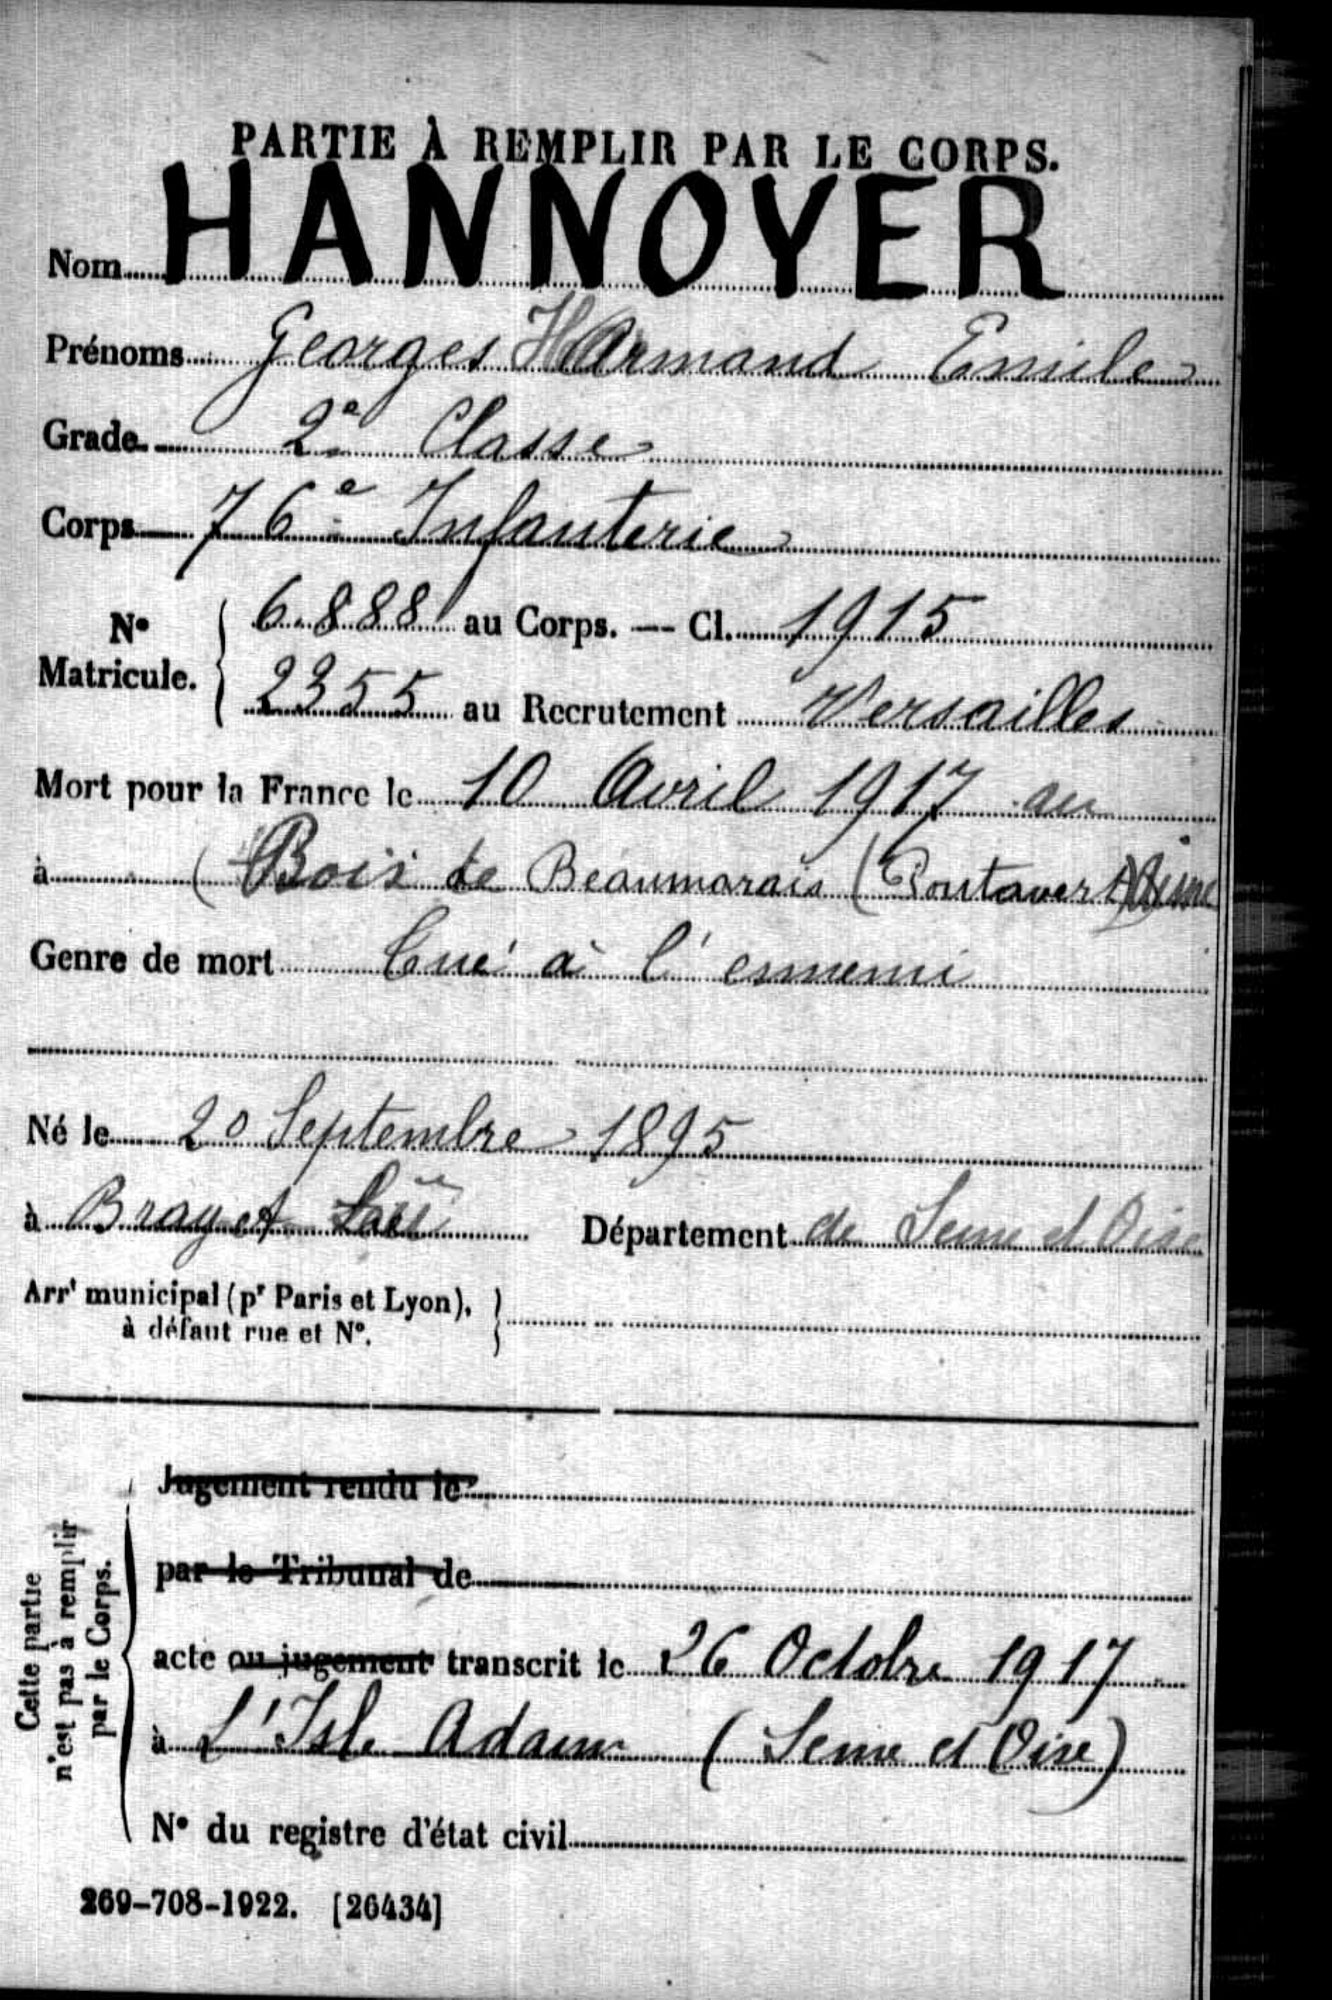 PARTIE À REMPLIR PAR LE CORPS.
Nom HANNOYER
Prénoms Georges Armand Emile
Grade 2e Classe
Corps 76e Infanterie
No Matricule. 6.888 au Corps. — Cl. 1915
2355 au Recrutement Versailles
Mort pour la France le 10 Avril 1917 au
à (Bois de Beaumarais (Pontavert) Aisne
Genre de mort Tué à l'ennemi
Né le 20 Septembre 1895
à Bray et Département de Seine et Oise
Arrt municipal (pr Paris et Lyon),
à défaut rue et No.
Cette partie
n'est pas à remplir
par le Corps.
Jugement rendu le
par le Tribunal de
acte ou jugement transcrit le 26 Octobre 1917
à L'Isle Adam (Seine et Oise)
No du registre d'état civil
269-708-1922. [26434]